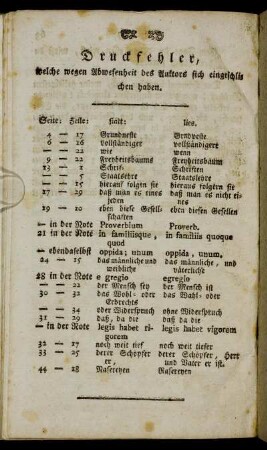 Druckfehler,
welche wegen Abwesenheit des Auktors sich eingeschli
chen haben.
Seite: Zeile: statt: lies.
4 — 17 Grundneste Grndveste
6 — 16 vollständiger vollständigert
— — 22 wie wenn
9 — 22 Freyheitsbaums Freyheitsbaum
13 — 1 Schrif- Schriften
— — 5 Staatslehre
— — 15 hierauf folgen sie hieraus folgern sie
17 — 29 daß man es eines daß man es nicht ei-
jeden nes
19 — 10 eben diese Gesell- eben diesen Gesellen
schaften
— in der Note Proverbium Proverb.
21 in der Note in familiisque, in familiis quoque
quod
— ebendaselbst oppida; unum oppida, unum,
24 — 15 das männliche und das männliche, und
weibliche väterliche
28 in der Note e gregio egregio
— — 22 der Mensch sey der Mensch ist
30 — 32 das Wohl- oder das Wahl- oder
Erbrechts
— — 34 oder Widerspruch ohne Widerspruch
31 — 29 daß, da die daß da die
— in der Note legis habet ri- legis habet vigorem
gorem
32 — 17 noch weit tief noch weit tiefer
33 — 25 derer Schöpfer derer Schöpfer, Herr
er, und Vater er ist.
44 — 28 Nasereyen Rasereyen